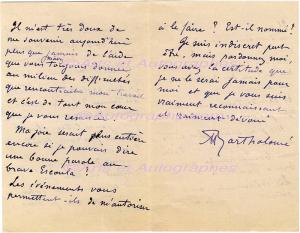 Il m'est très doux de
me souvenir aujourd'hui
plus que jamais de l'aide
que vous m'avez toujours donnée
au milieu des difficultés
que rencontrait mon travail
et c'est de tout mon cœur
que je vous
Ma joie serait plus entière
encore si je pouvais dire
une bonne parole au
brave Escoula ?
Les événements vous
permettent-ils de m'autoriser
à le faire ? Est-il nommé ?
Je suis indiscret peut
être, mais pardonnez moi,
vous avez la certitude que
je ne le serai jamais pour
moi et que je vous suis
vraiment reconnaissant
et vraiment dévoué
ABartholomé